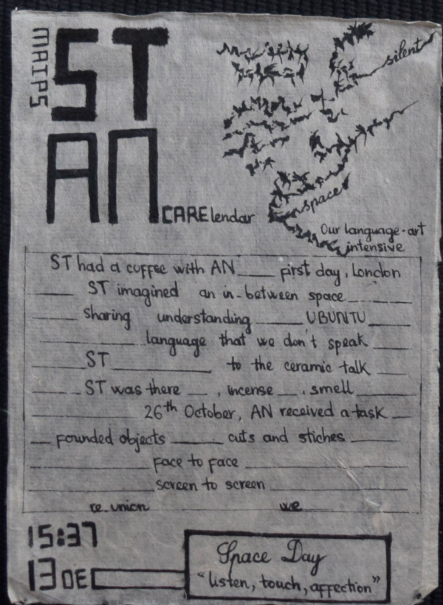 MAIPS
ST
AN
CARElendar
silent
space
Our language-art
intensive
ST had a coffee with AN ____ first day, London
____ ST imagined an in-between space ____
____ sharing understanding ____ UBUNTU ____
____ language that we don't speak ____
____ ST ____ to the ceramic talk ____
____ ST was there ____, incense ____, smell ____
____ 26th October, AN received a task ____
____ founded objects ____ cuts and stiches ____
____ face to face ____
____ screen to screen ____
re union ____ we ____
15:37
13 DE
Space Day
"listen, touch, affection"